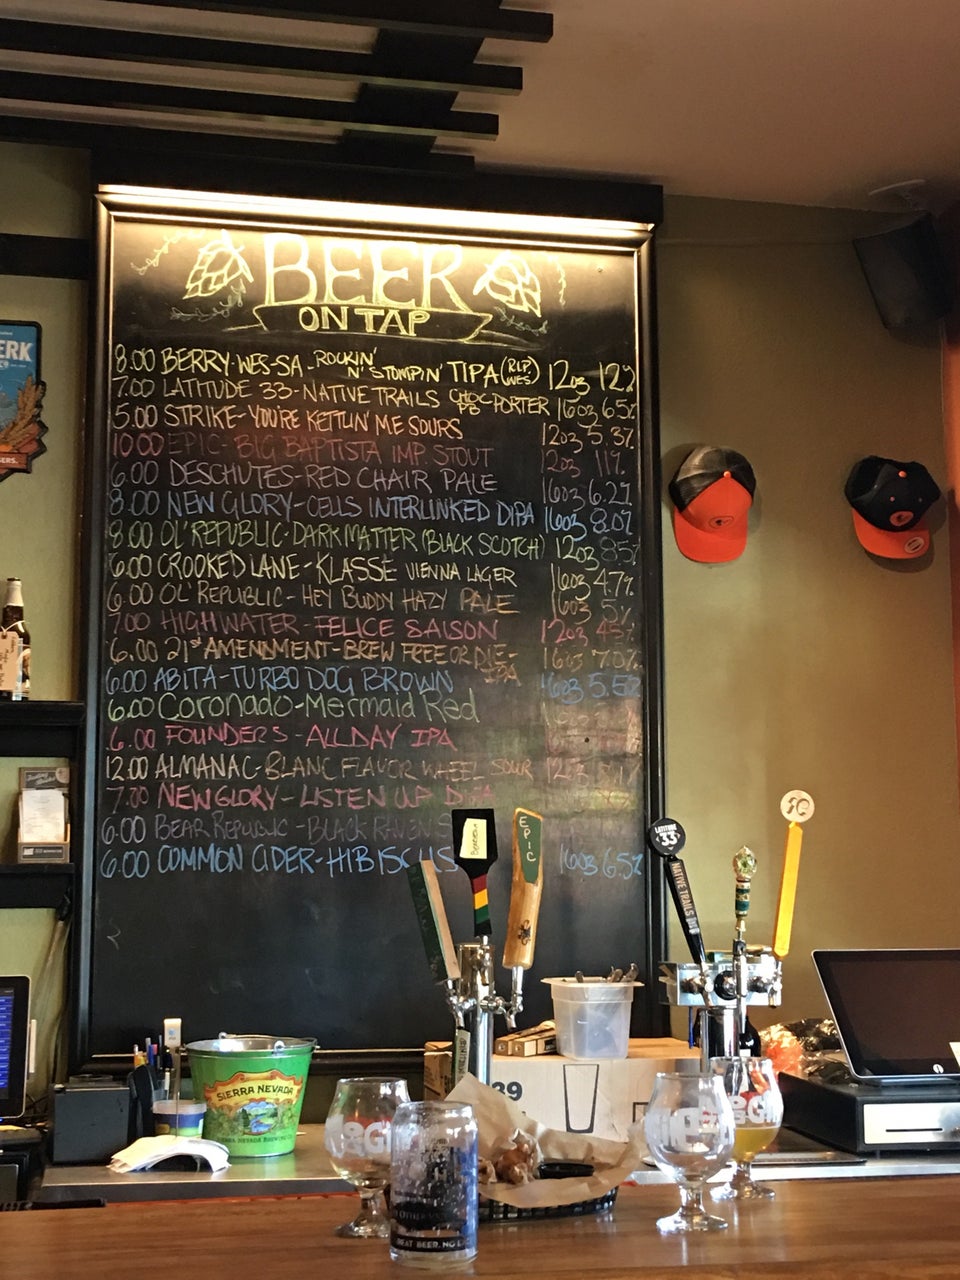 BEER
ON TAP
8.00 BERRY-WES-SA-ROCKIN' N' STOMPIN' TIPA (R.I.P. WES) 12oz 12%
7.00 LATITUDE 33-NATIVE TRAILS CHOC PB PORTER 16oz 6.5%
5.00 STRIKE-YOU'RE KETTLIN' ME SOURS 12oz 5.3%
10.00 EPIC-BIG BAPTISTA IMP. STOUT 12oz 11%
6.00 DESCHUTES-RED CHAIR PALE 16oz 6.2%
8.00 NEW GLORY-CELLS INTERLINKED DIPA 16oz 8.0%
8.00 OL' REPUBLIC-DARK MATTER (BLACK SCOTCH) 12oz 8.5%
6.00 CROOKED LANE-KLASSE VIENNA LAGER 16oz 4.7%
6.00 OL' REPUBLIC-HEY BUDDY HAZY PALE 16oz 5%
7.00 HIGH WATER-FELICE SAISON 12oz 4.5%
6.00 21st AMENDMENT-BREW FREE OR DIE-IPA 16oz 7.0%
6.00 ABITA-TURBO DOG BROWN 16oz 5.5%
6.00 Coronado-Mermaid Red
6.00 FOUNDERS-ALL DAY IPA
12.00 ALMANAC-BLANC FLAVOR WHEEL SOUR 12oz
7.00 NEW GLORY-LISTEN UP
6.00 BEAR REPUBLIC-BLACK RAVEN
6.00 COMMON CIDER-HIBISCUS 16oz 6.5%
ERK
ERS.
EPIC
LATITUDE 33°
NATIVE TRAILS
SIERRA NEVADA
SIERRA NEVADA BREWING
39